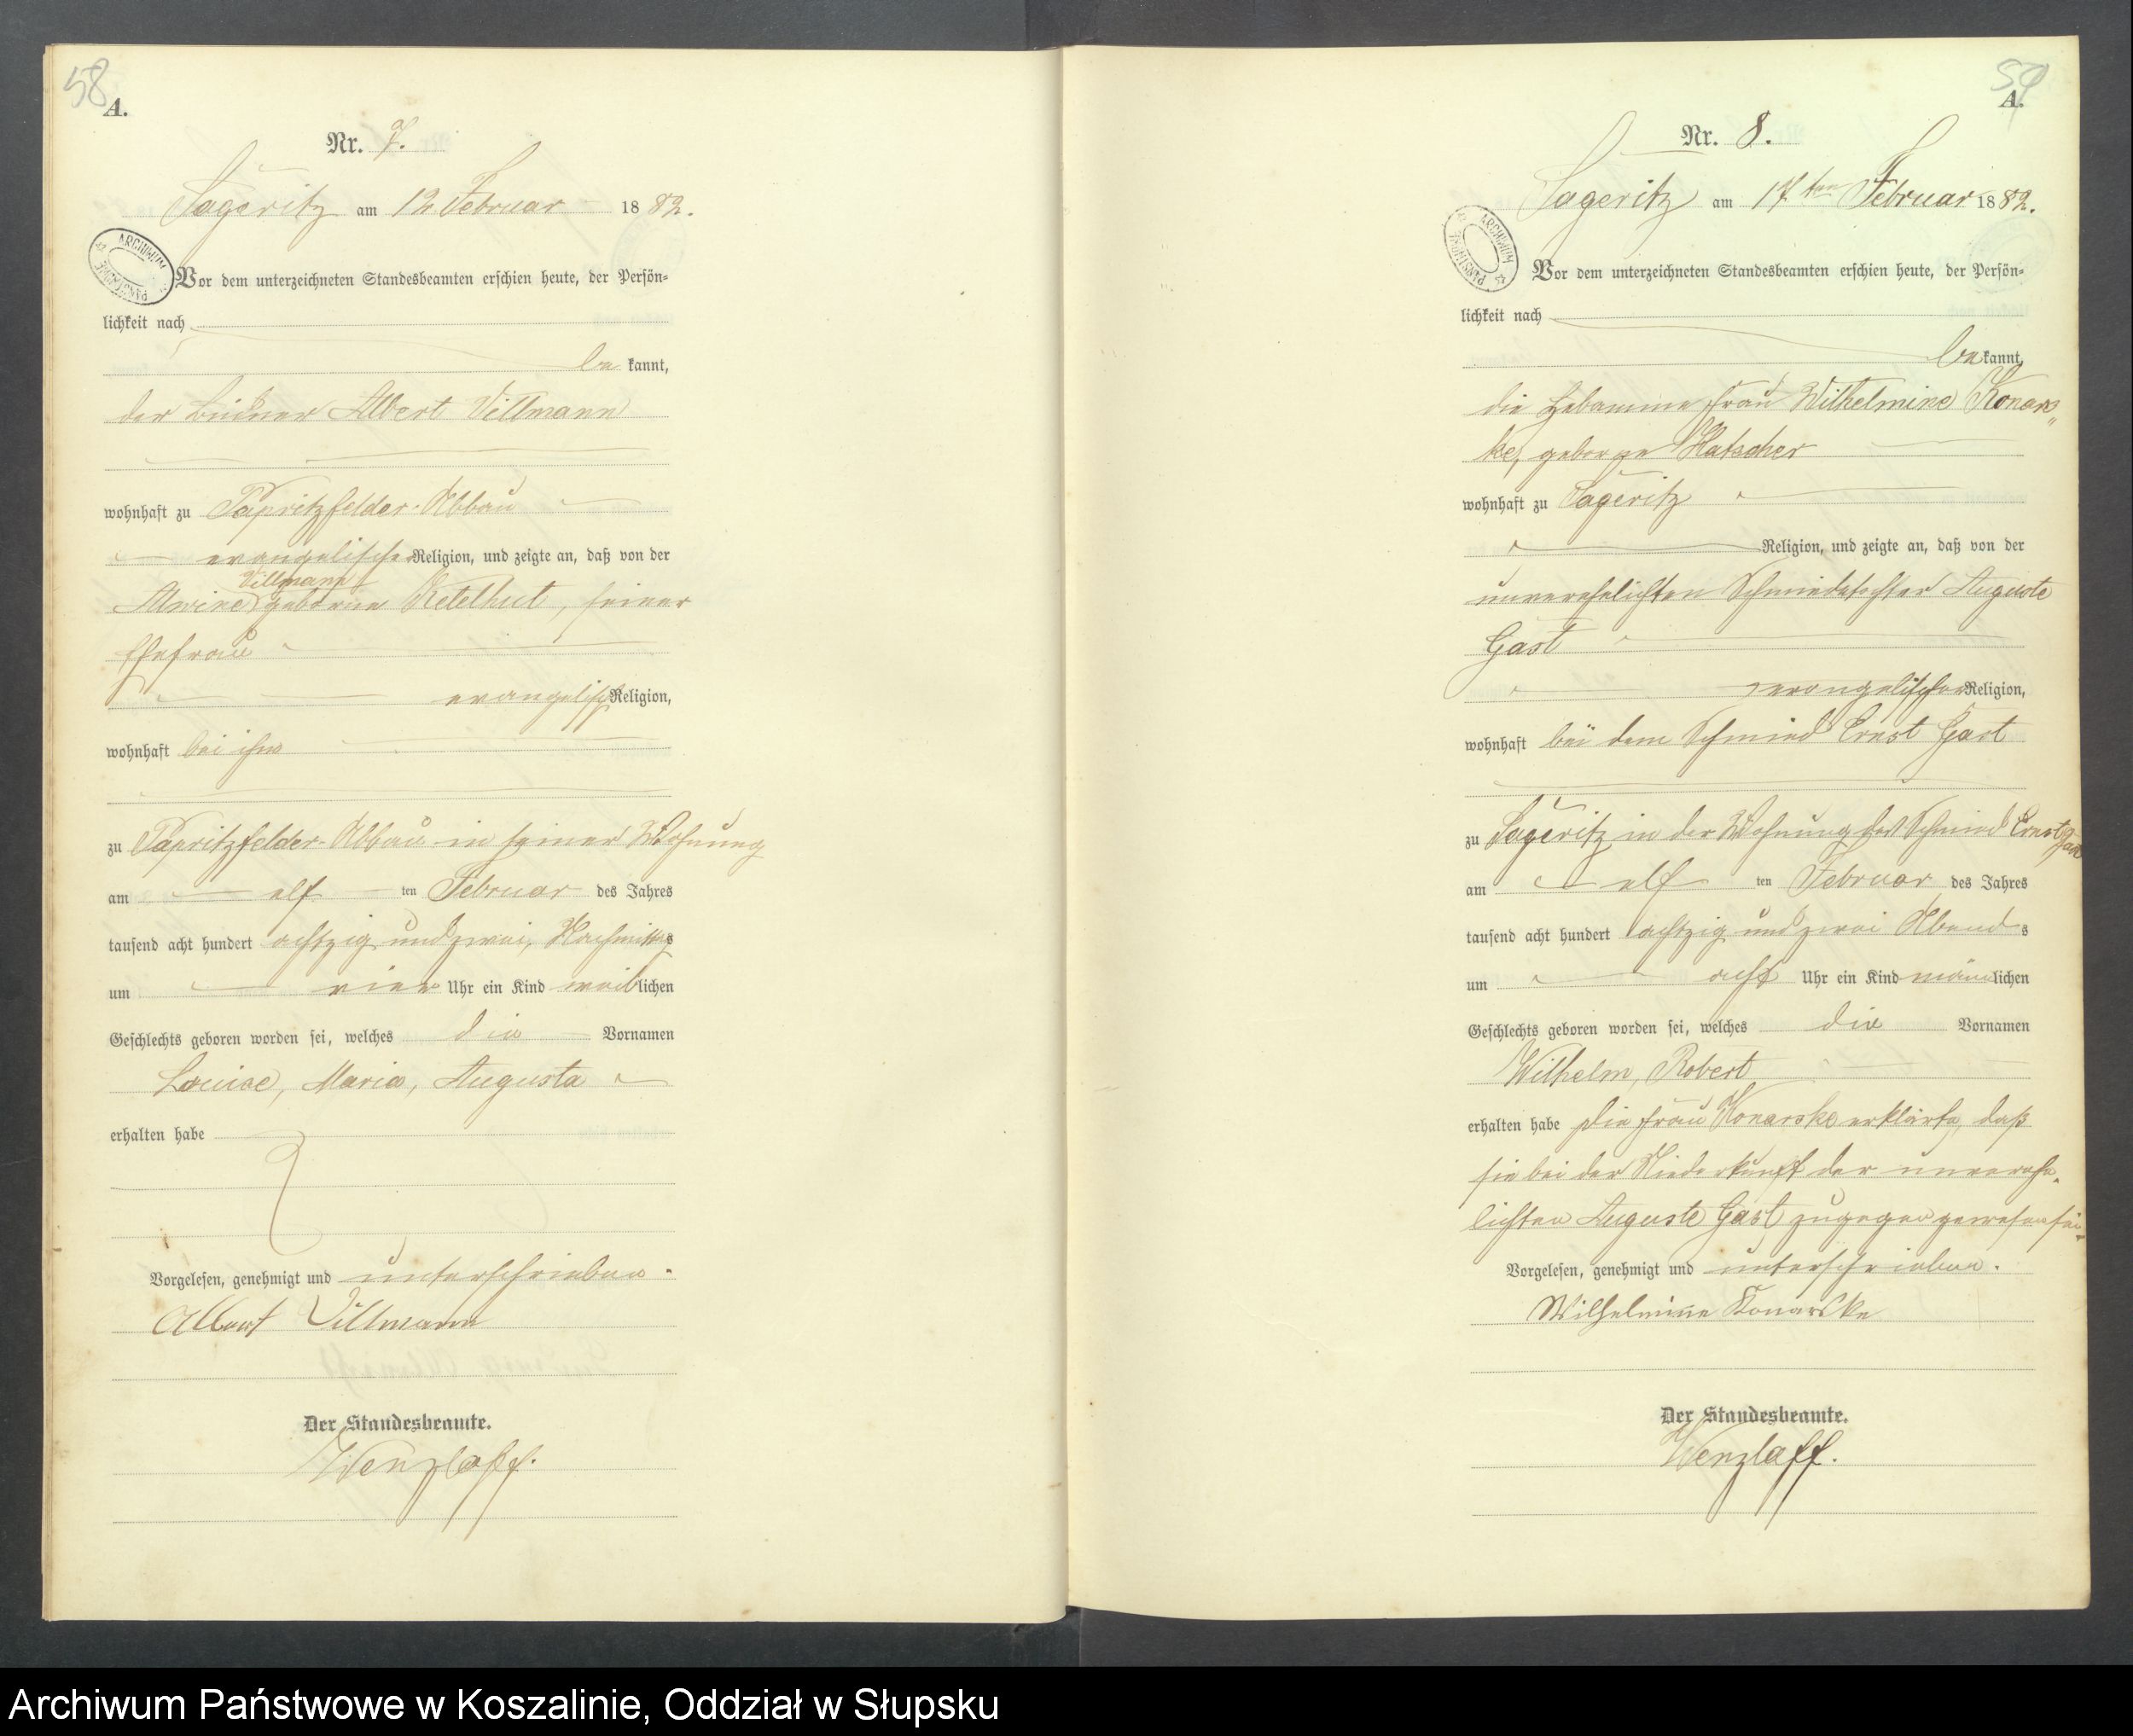 58
A.
Nr. 7.
Sageritz am 12 Februar 1882.
ARCHIWUM PAŃSTWOWE
Vor dem unterzeichneten Standesbeamten erschien heute, der Persön-
lichkeit nach
be kannt,
der Büdner Albert Villmann
wohnhaft zu Papritzfelder-Abbau
evangelischer Religion, und zeigte an, daß von der
Villmann
Alwine geborne Ketelhut, seiner
Ehefrau
evangelisch Religion,
wohnhaft bei ihm
zu Papritzfelder-Abbau in seiner Wohnung
am elf ten Februar des Jahres
tausend acht hundert achtzig und zwei, Nachmittags
um vier Uhr ein Kind weiblichen
Geschlechts geboren worden sei, welches die Vornamen
Louise, Maria, Augusta
erhalten habe
Vorgelesen, genehmigt und unterschrieben.
Albert Villmann
Der Standesbeamte.
Wenzlaff.
59
A.
Nr. 8.
Sageritz am 17ten Februar 1882.
ARCHIWUM PAŃSTWOWE
Vor dem unterzeichneten Standesbeamten erschien heute, der Persön-
lichkeit nach
be kannt,
die Hebamme Frau Wilhelmine Konars„
ke, geborne Hatscher
wohnhaft zu Sageritz
Religion, und zeigte an, daß von der
unverehelichten Schmiedetochter Auguste
Gast
evangelischer Religion,
wohnhaft bei dem Schmied Ernst Gast
zu Sageritz in der Wohnung des Schmied Ernst Gast
am elf ten Februar des Jahres
tausend acht hundert achtzig und zwei Abends
um acht Uhr ein Kind männlichen
Geschlechts geboren worden sei, welches die Vornamen
Wilhelm, Robert
erhalten habe die Frau Konarske erklärte, daß
sie bei der Niederkunft der unverehe-
lichten Auguste Gast zugegen gewesen sei.
Vorgelesen, genehmigt und unterschrieben.
Wilhelmine Konarske
Der Standesbeamte.
Wenzlaff.
Archiwum Państwowe w Koszalinie, Oddział w Słupsku